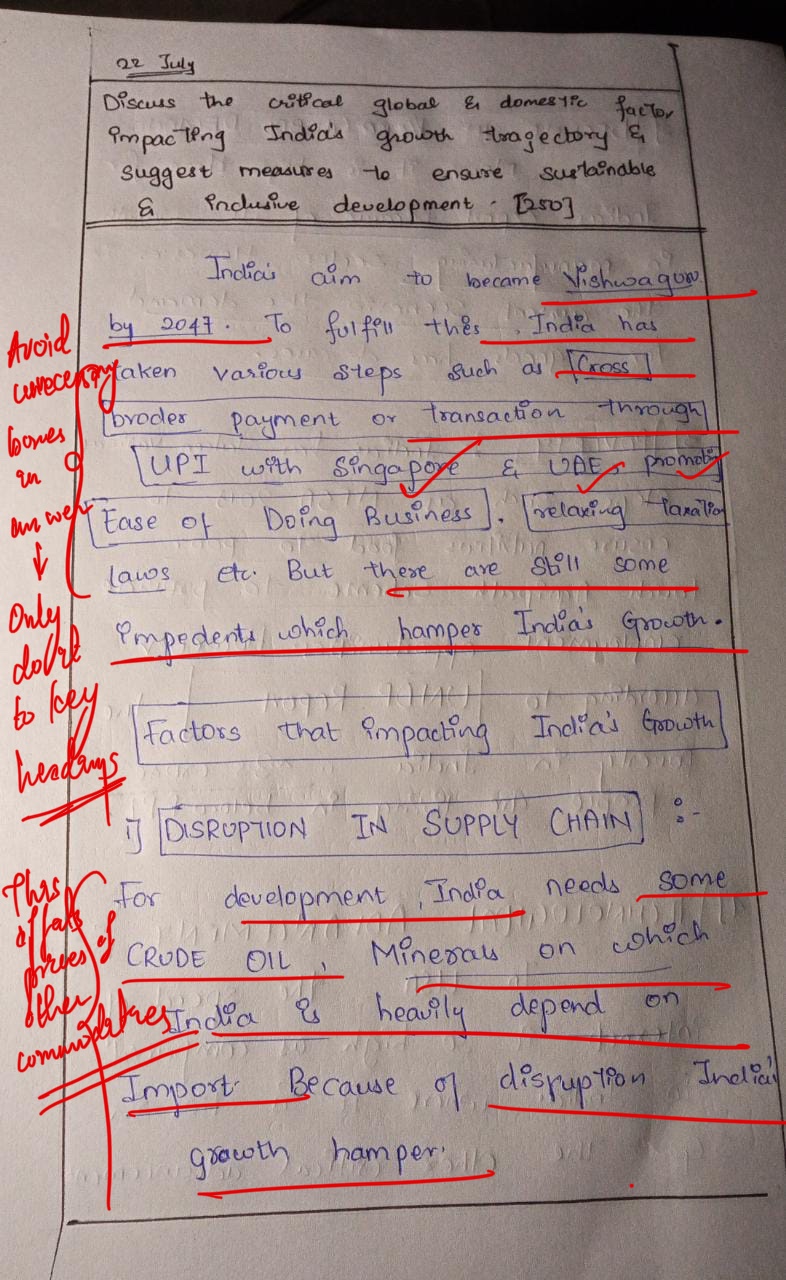 22 July
Discuss the critical global & domestic factor
impacting India's growth tragectory &
suggest measures to ensure sustainable
& inclusive development. [250]
India's aim to became Vishwaguru
by 2047. To fulfill this, India has
taken various steps such as Cross
broder payment or transaction through
UPI with Singapore & UAE, promoting
Ease of Doing Business, relaxing taxation
laws etc. But there are still some
impedents which hamper India's Growth.
Factors that impacting India's Growth
1] DISRUPTION IN SUPPLY CHAIN :-
For development, India needs some
CRUDE OIL, Minerals on which
India is heavily depend on
Import. Because of disruption India's
growth hamper.
Avoid
unnecessary
boxes
in
answer
↓
Only
do
to key
headings
This
affects
prices of
other
commodities